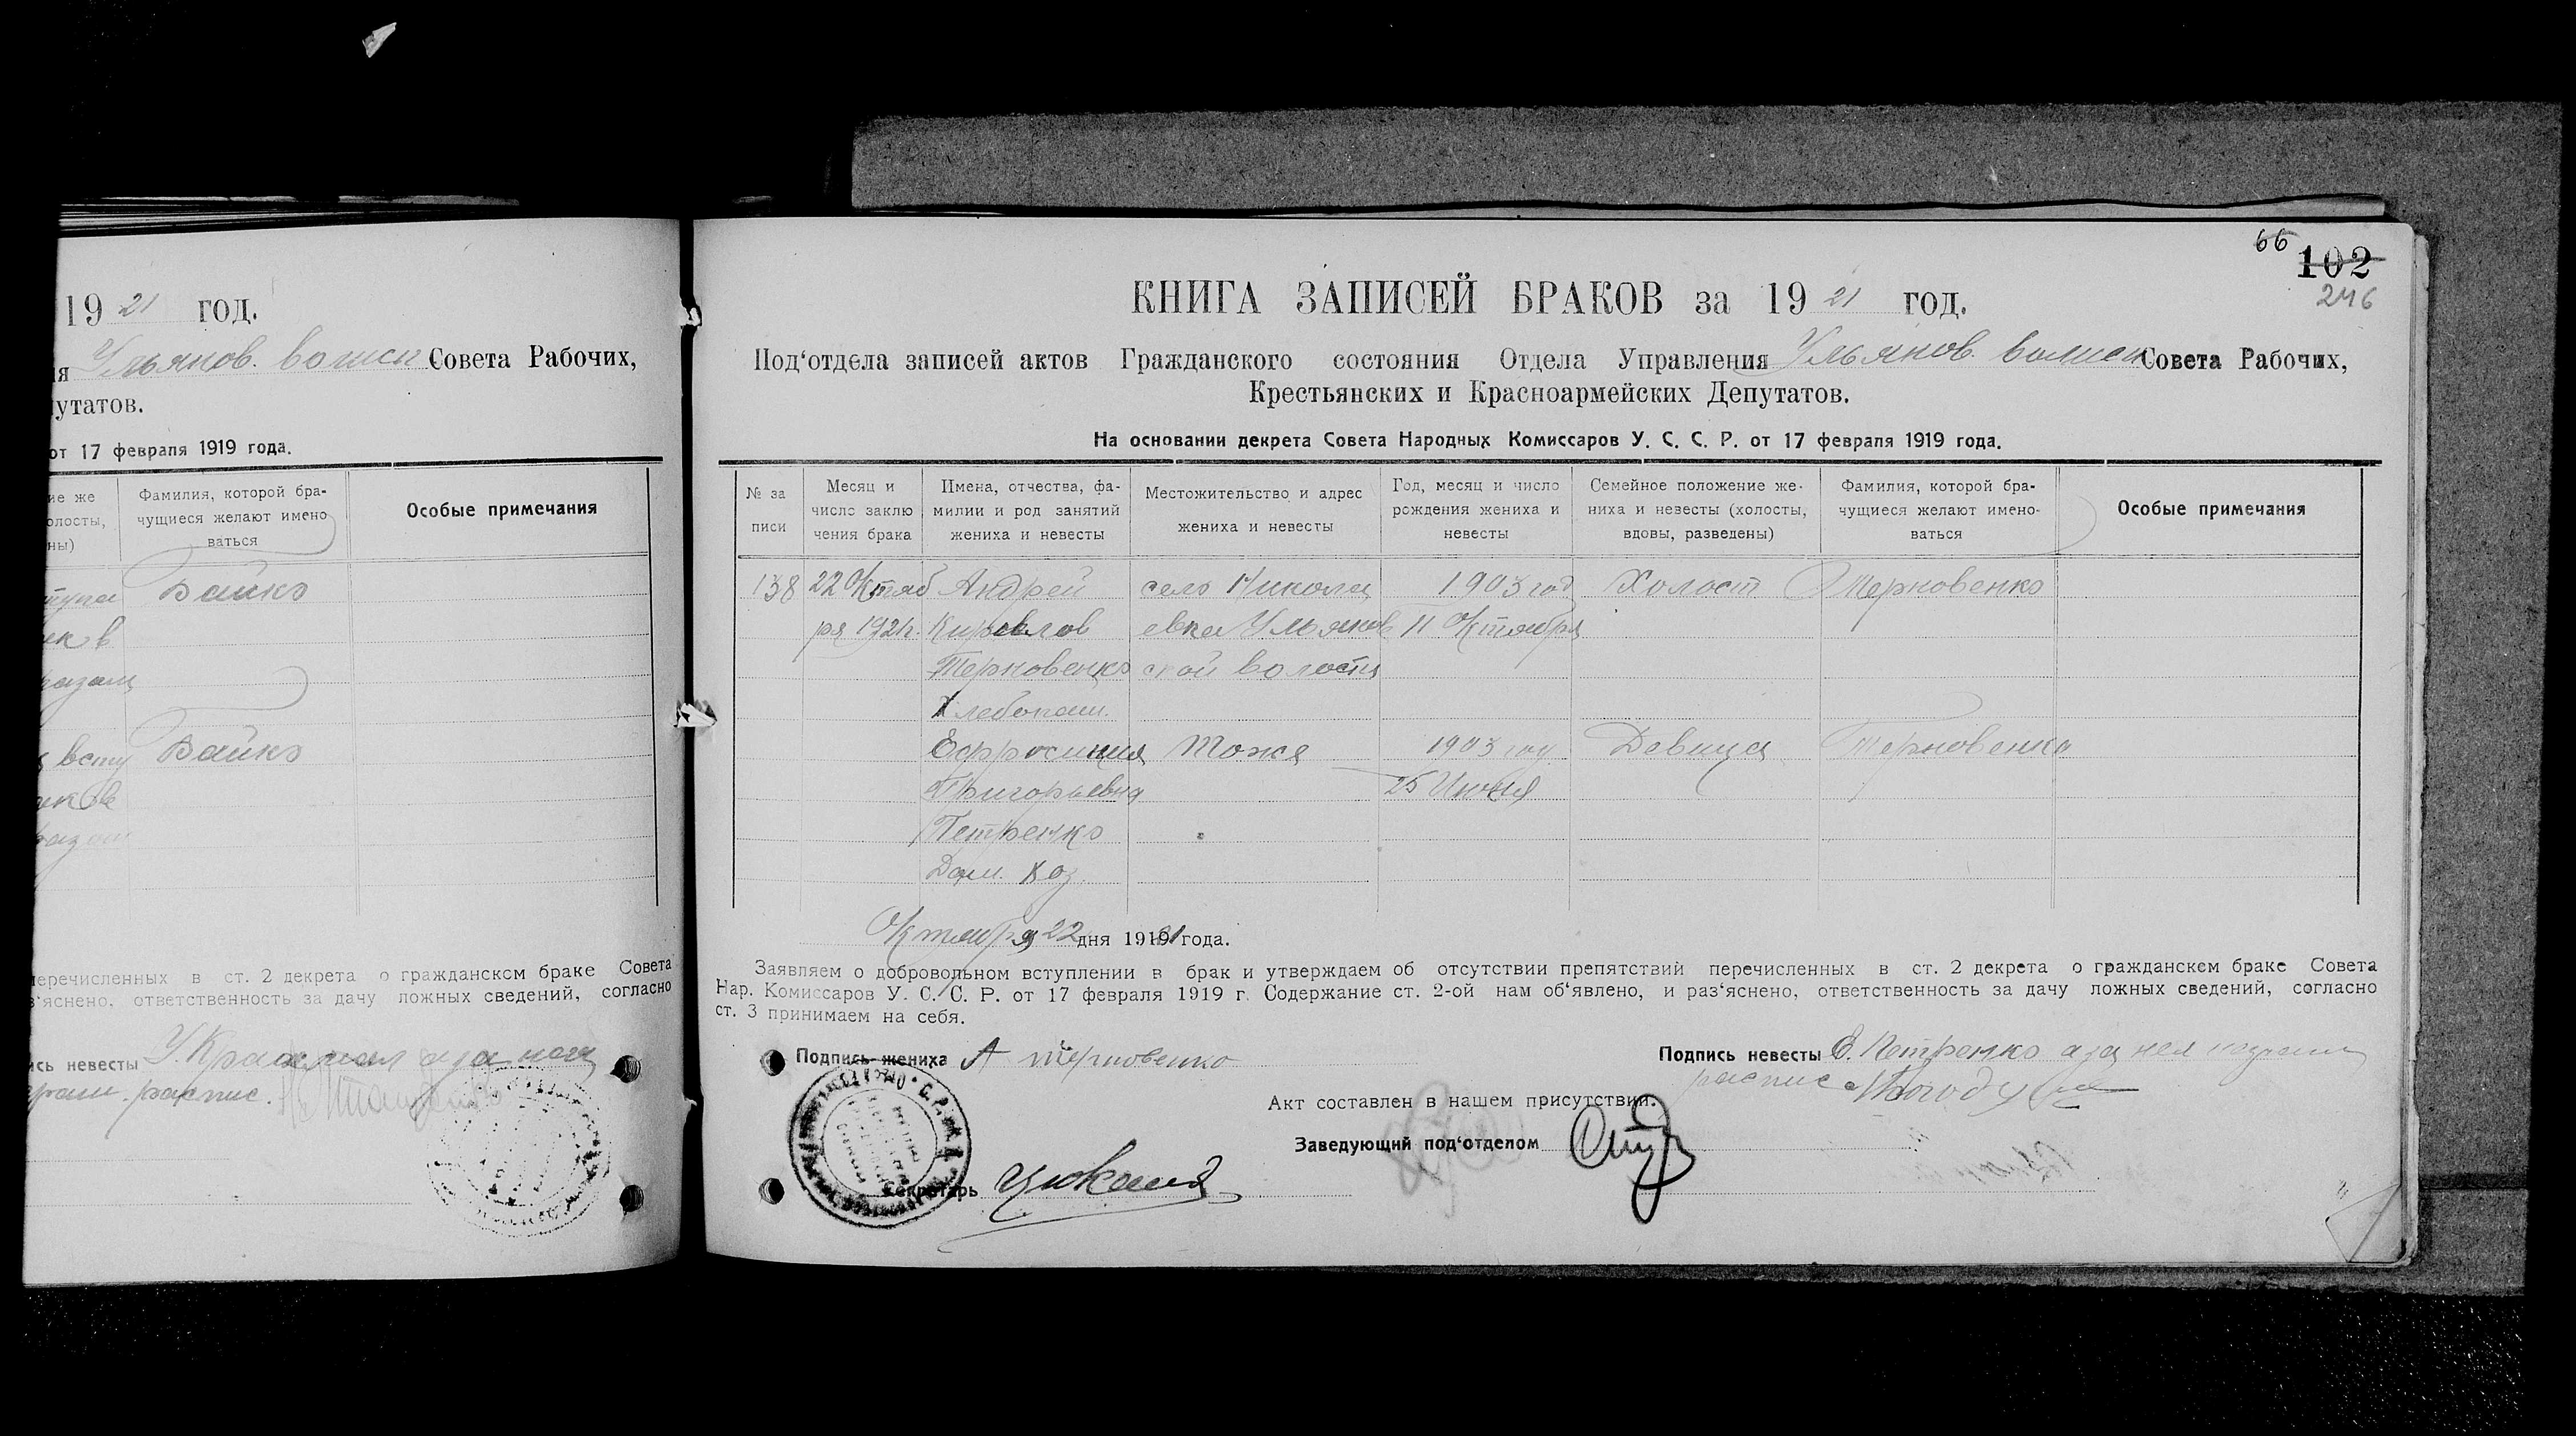 1921 год.
Ульянов. волисп Совета Рабочих,
путатов.
от 17 февраля 1919 года.
Фамилия, которой бра-
чущиеся желают имено-
ваться
Особые примечания
Байко
Байко
перечисленных в ст. 2 декрета о гражданском браке Совета
з'яснено, ответственность за дачу ложных сведений, согласно
ись невесты
распис.
66
102
246
КНИГА ЗАПИСЕЙ БРАКОВ за 1921 год.
Под'отдела записей актов Гражданского состояния Отдела Управления Ульянов. волисп Совета Рабочих,
Крестьянских и Красноармейских Депутатов.
На основании декрета Совета Народных Комиссаров У. С. С. Р. от 17 февраля 1919 года.
№ за
писи
Месяц и
число заклю
чения брака
Имена, отчества, фа-
милии и род занятий
жениха и невесты
Местожительство и адрес
жениха и невесты
Год, месяц и число
рождения жениха и
невесты
Семейное положение же-
ниха и невесты (холосты,
вдовы, разведены)
Фамилия, которой бра-
чущиеся желают имено-
ваться
Особые примечания
138 22 Октяб Андрей село Никола 1903 год Холост Терновенко
ря 1921г. Кирилов евка Ульянов 11 Октября
Терновенко ской волости
Хлебопаш.
Ефросиния Тоже 1903 год Девица Терновенко
Григорьевна 25 Июня
Петренко
Дом. хоз.
Октября 22 дня 1921 года.
Заявляем о добровольном вступлении в брак и утверждаем об отсутствии препятствий перечисленных в ст. 2 декрета о гражданском браке Совета
Нар. Комиссаров У. С. С. Р. от 17 февраля 1919 г. Содержание ст. 2-ой нам об'явлено, и раз'яснено, ответственность за дачу ложных сведений, согласно
ст. 3 принимаем на себя.
Подпись жениха А Терновенко
Подпись невесты Е. Петренко а за нея неграм
распис
Акт составлен в нашем присутствии.
Заведующий под'отделом
Секретарь